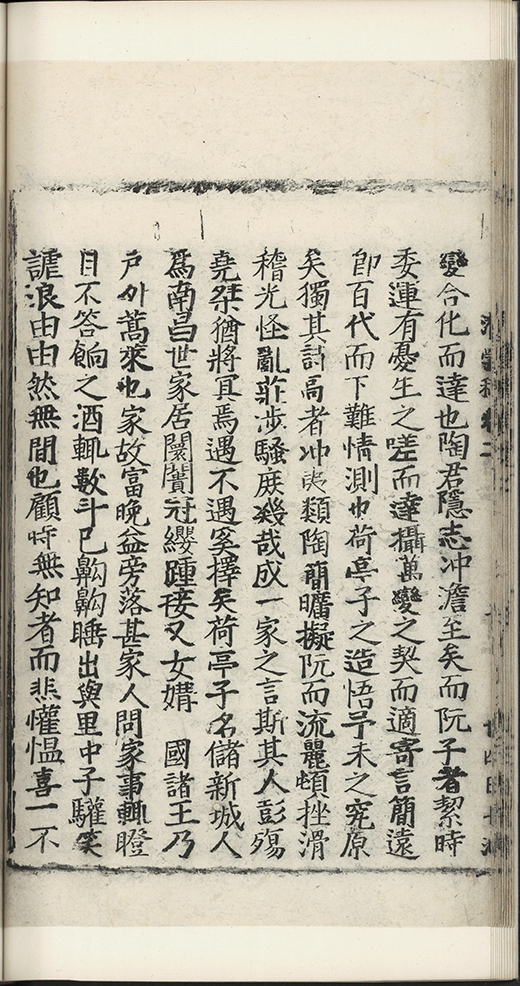 變合化而達也陶君隱志冲澹至矣而阮子者絜時
委運有憂生之嗟而達攝萬變之契而適寄言簡遠
卽百代而下難情測也荷亭子之造悟予未之究原
矣獨其詩高者冲夷類陶簡曠擬阮而流麗頓挫滑
稽光怪亂莊涉騷庻幾哉成一家之言斯其人彭殤
堯桀猶將冥焉遇不遇奚擇矣荷亭子名儲新城人
爲南昌世家居闤闠冠纓踵接又女媾　國諸王乃
戶外蒿萊也家故富晚益旁落甚家人問家事輒瞪
目不答餉之酒輒數斗已齁齁睡出與里中子驩笑
謔浪由由然無間也顧時無知者而悲懽愠喜一不